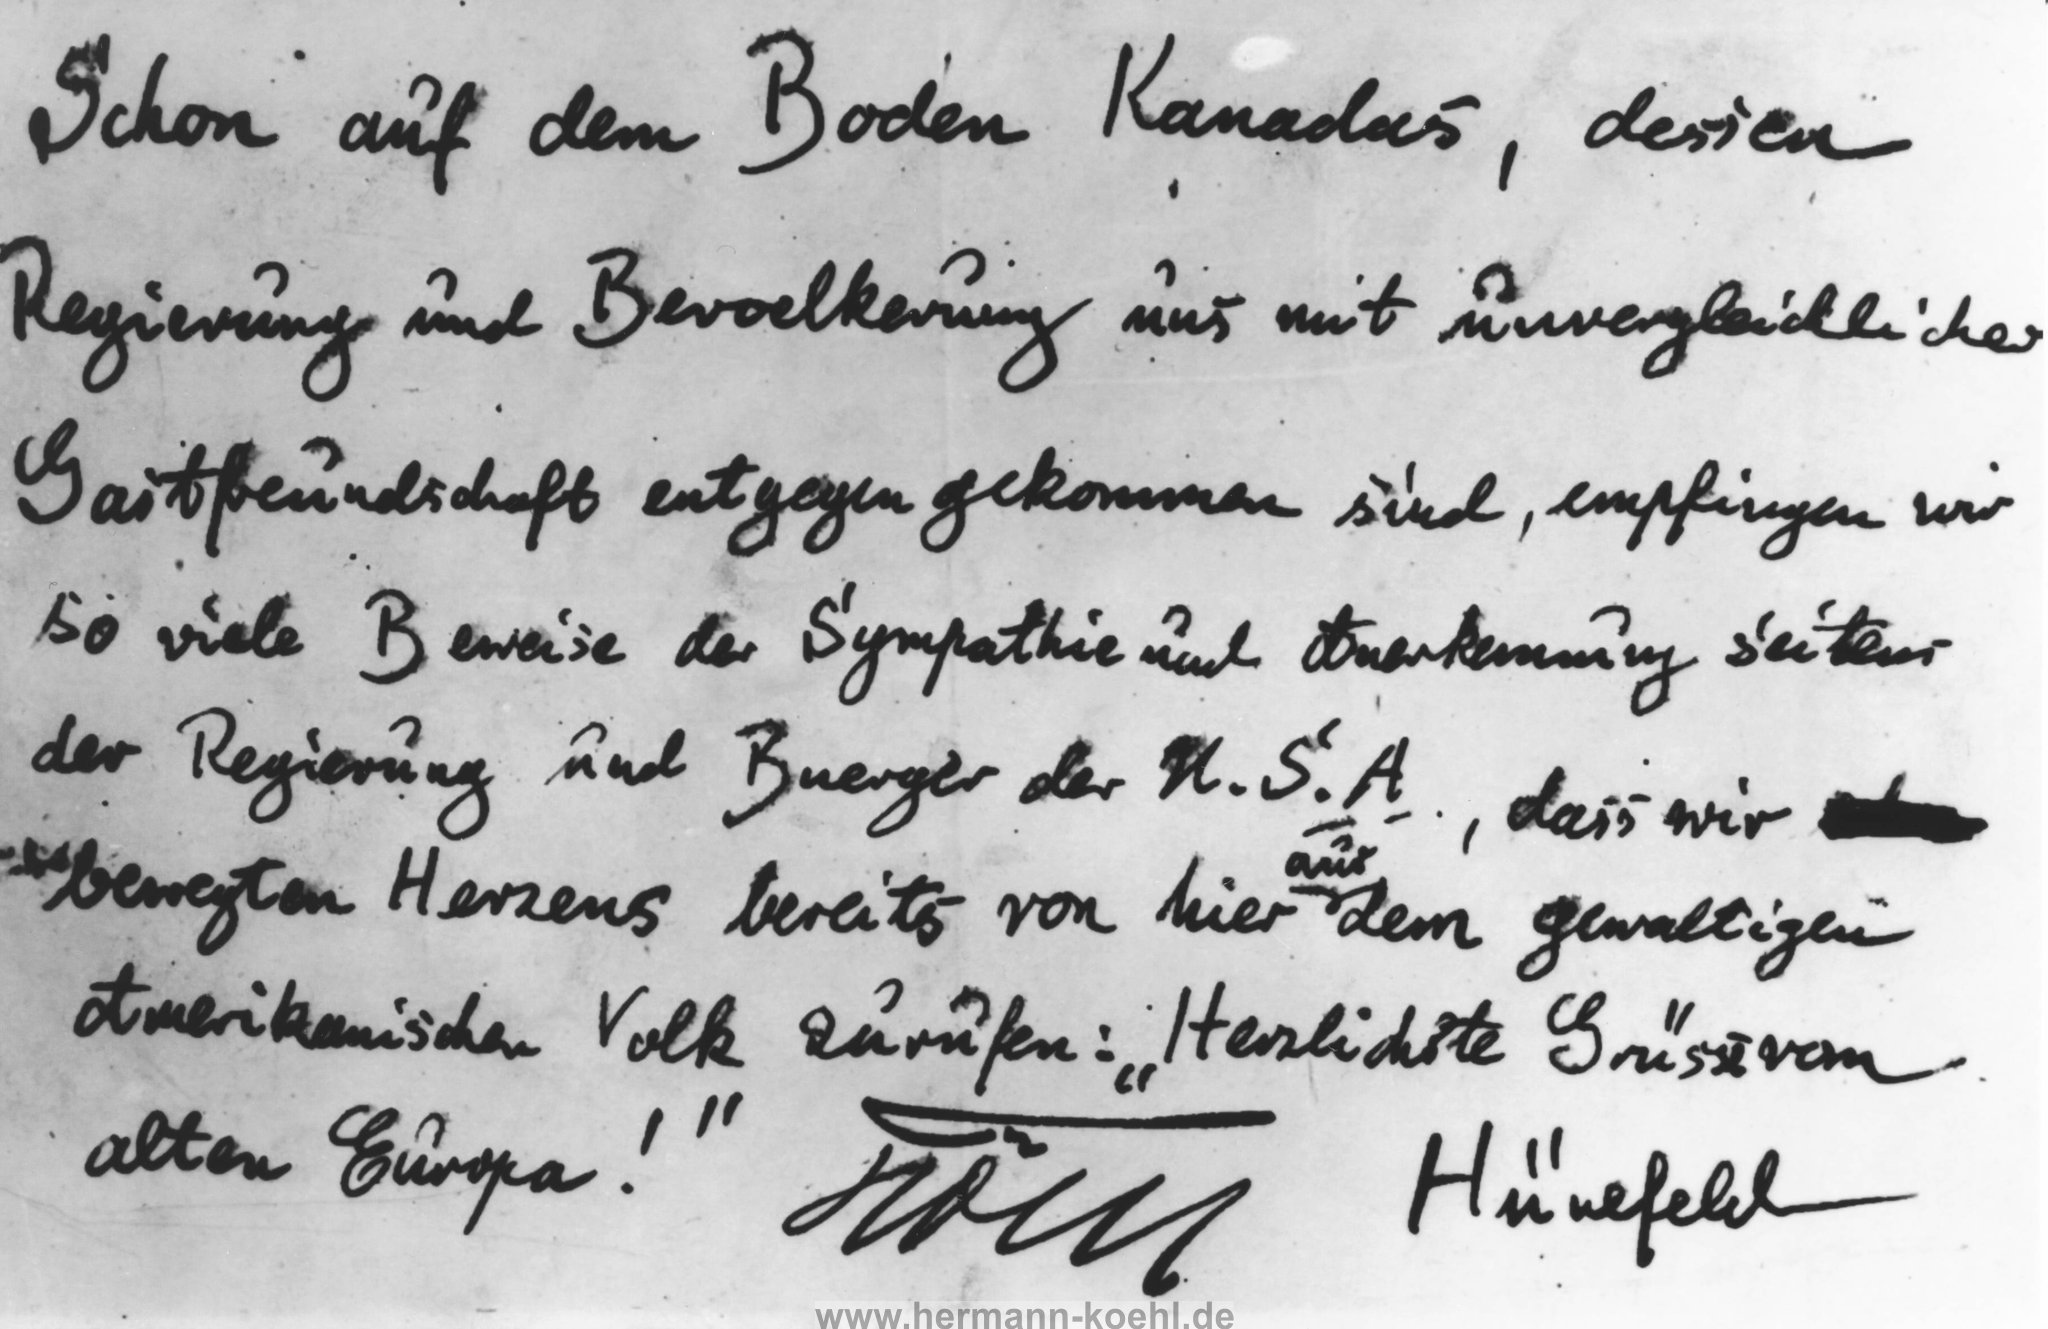 Schon auf dem Boden Kanadas, dessen
Regierung und Bevoelkerung uns mit unvergleichlicher
Gastfreundschaft entgegengekommen sind, empfingen wir
so viele Beweise der Sympathie und Anerkennung seitens
der Regierung und Buerger der U.S.A., dass wir
bewegten Herzens bereits von hier aus dem gewaltigen
Amerikanischen Volk zurufen: „Herzlichste Grüsse vom
alten Europa!"
Köhl Hünefeld
www.hermann-koehl.de